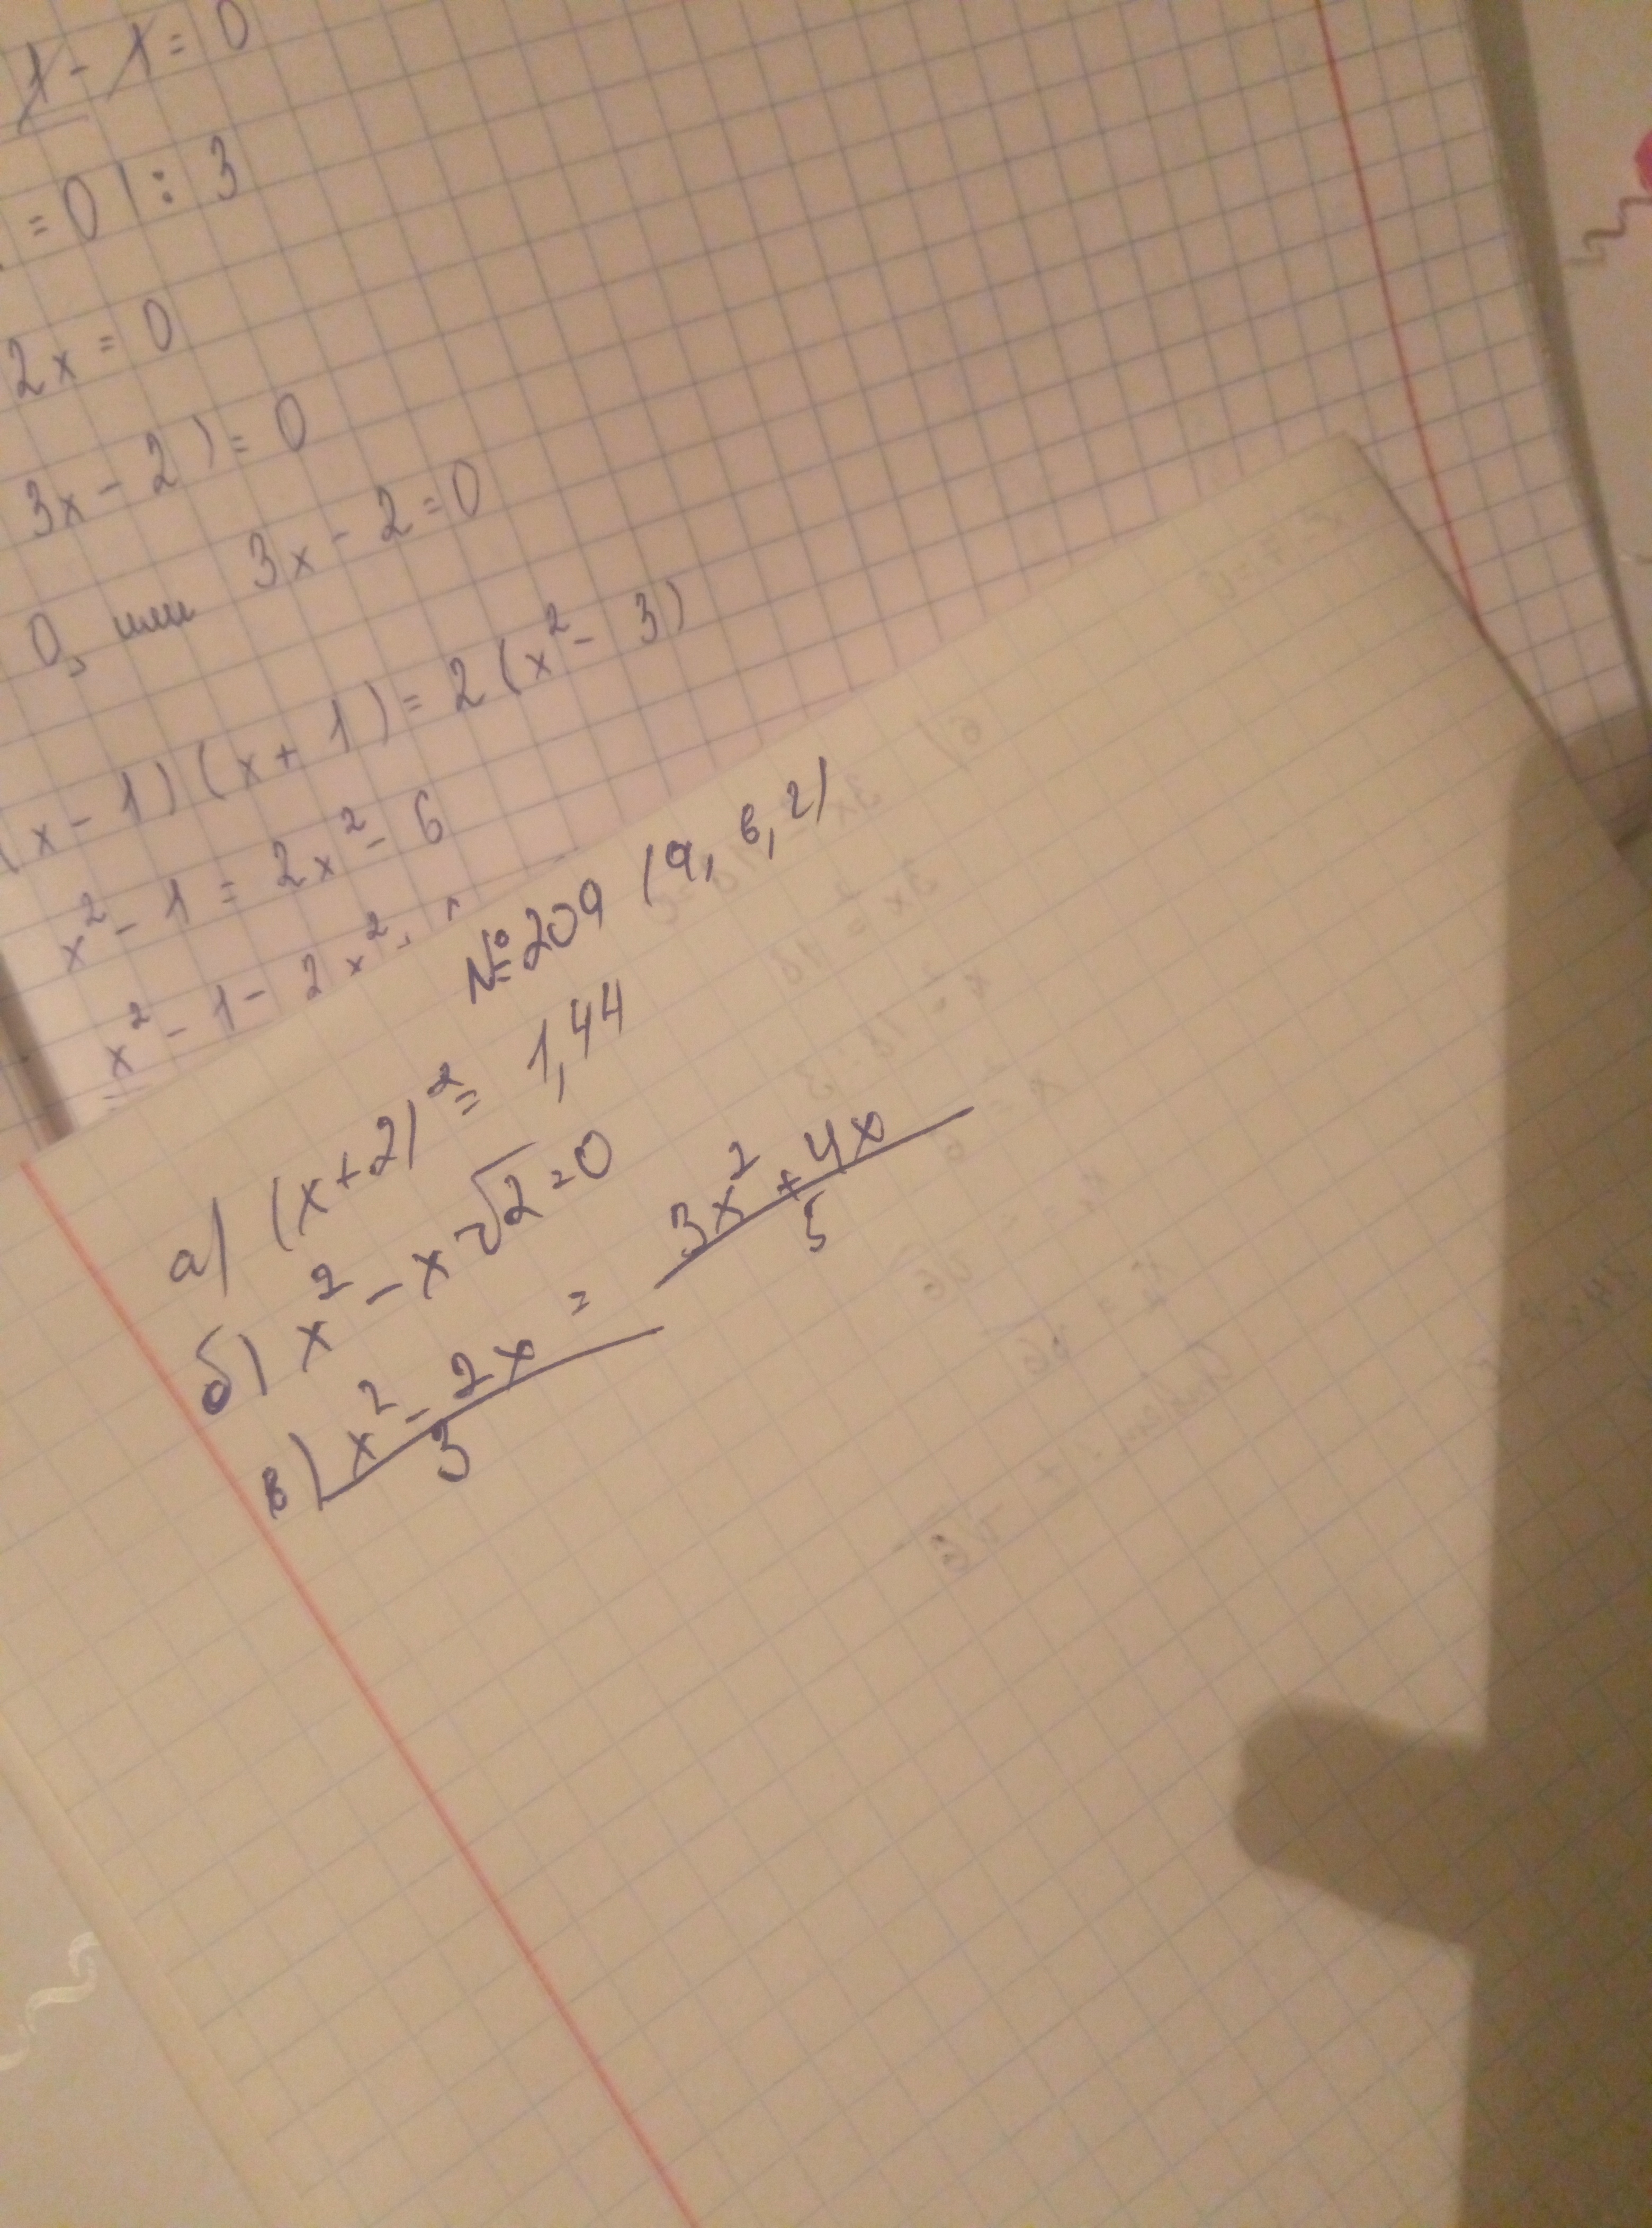 x - x = 0
= 0 | : 3
2x = 0
3x - 2) = 0
0, или 3x - 2 = 0
(x - 1)(x + 1) = 2(x² - 3)
x² - 1 = 2x² - 6
x² - 1 - 2x²
№ 209 (а, в, г)
а) (x+2)² = 1,44
б) x² - x√2 = 0
в) (x² - 2x)/3 = (3x² + 4x)/5